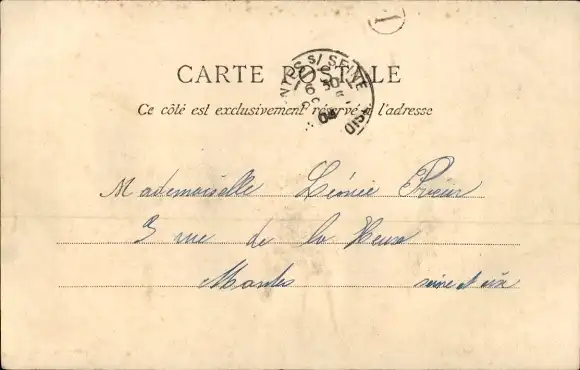 1
CARTE POSTALE
NTES S/ SEINE
6 30
04
Ce côté est exclusivement réservé à l'adresse
Mademoiselle Léonie
3 rue de la
Mantes Seine et Oise